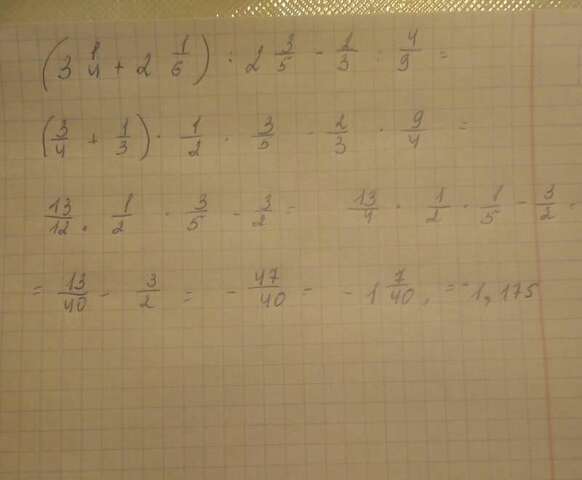 (3 1/4 + 2 1/6) : 2 3/5 - 2/3 : 4/9 =
(3/4 + 1/3) · 1/2 · 3/5 - 2/3 · 9/4 =
13/12 · 1/2 · 3/5 - 3/2 = 13/4 · 1/2 · 1/5 - 3/2 =
= 13/40 - 3/2 = - 47/40 = - 1 7/40, = -1,175